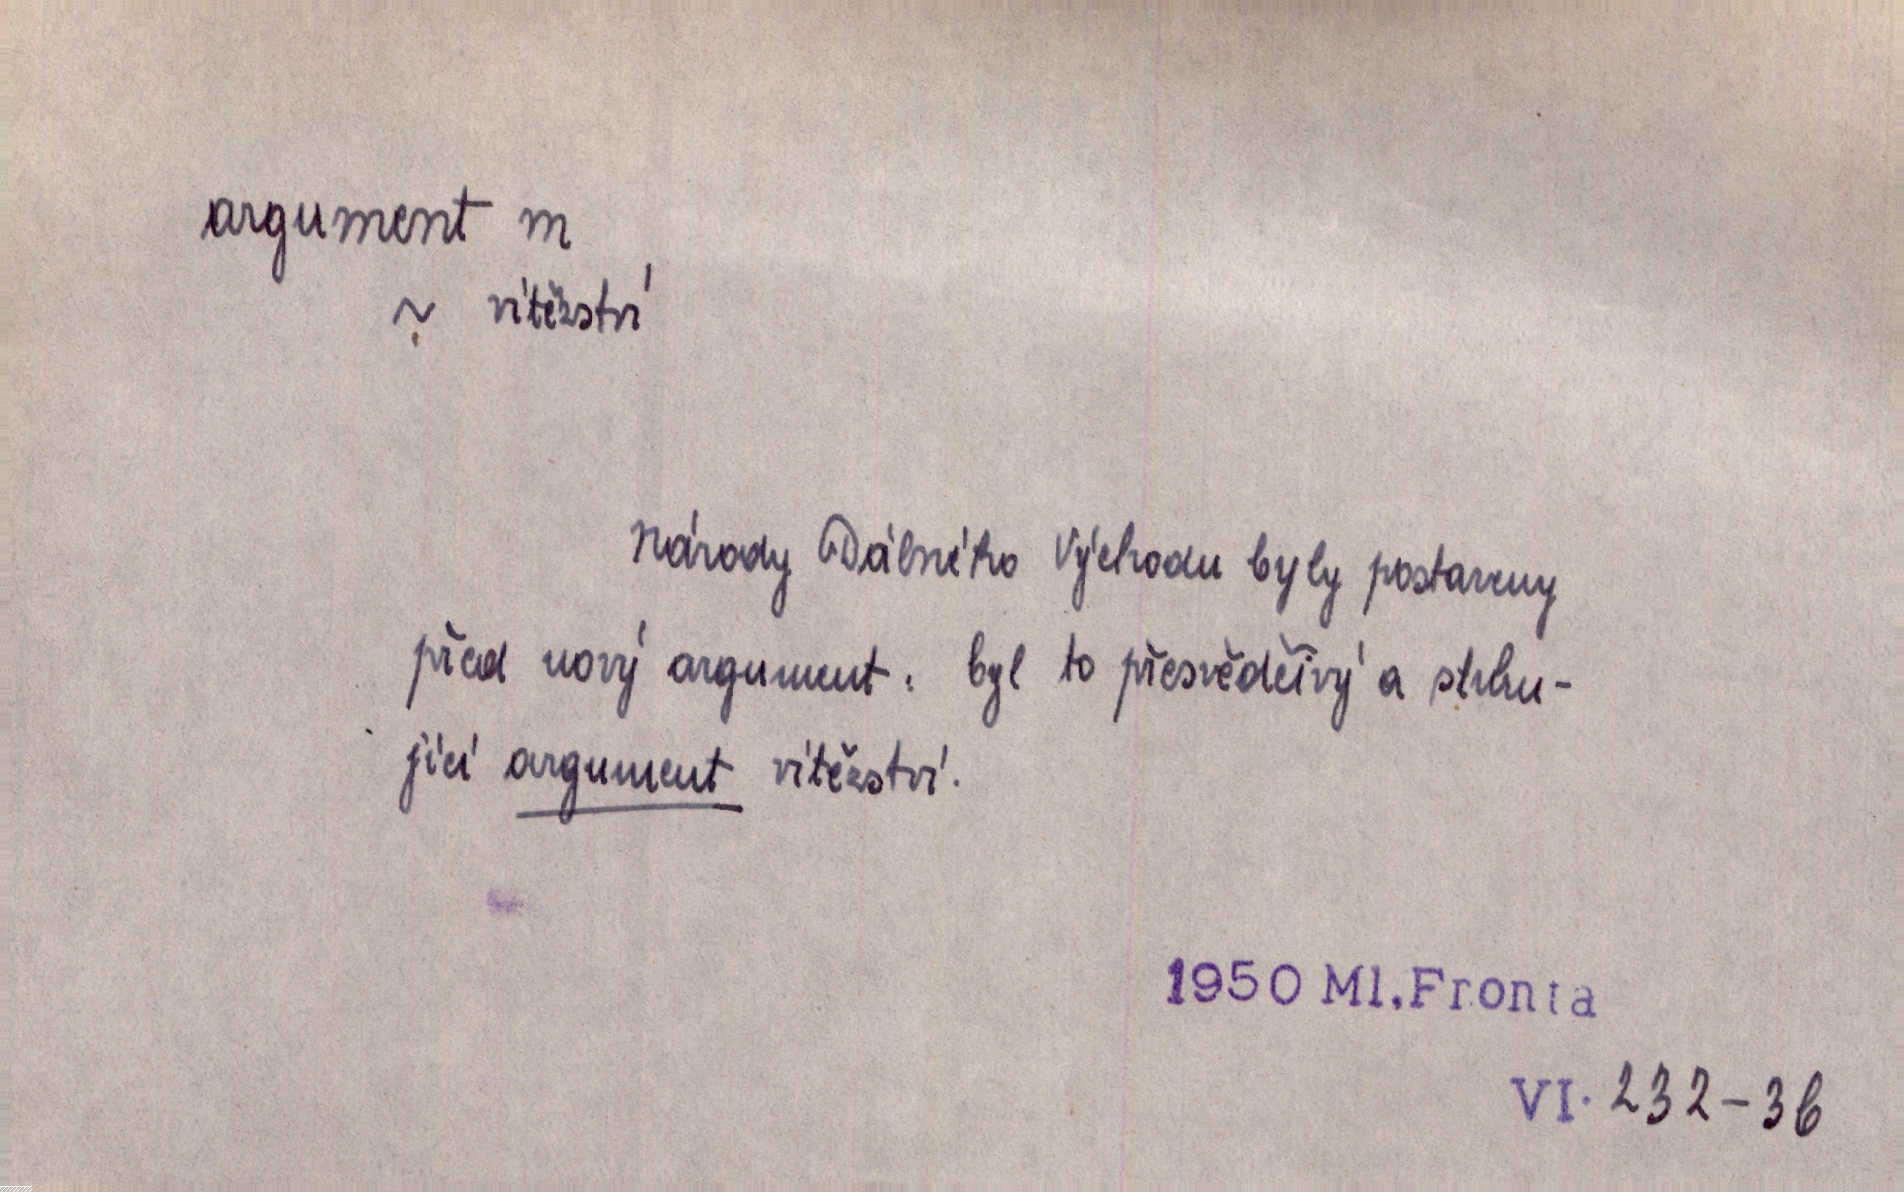 argument m
~ vítězství
Národy Dálného Východu byly postaveny
před nový argument: byl to přesvědčivý a strhu-
jící argument vítězství.
1950 Ml.Fronta
VI. 232-3b